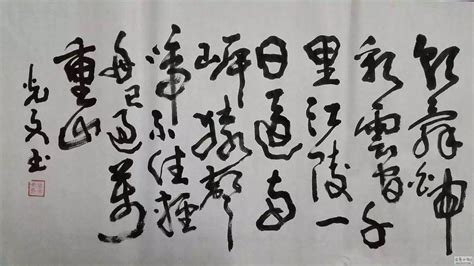 朝辞白帝
彩雲间千
里江陵一
日還两
岸猿声
啼不住轻
舟已過萬
重山
光文书